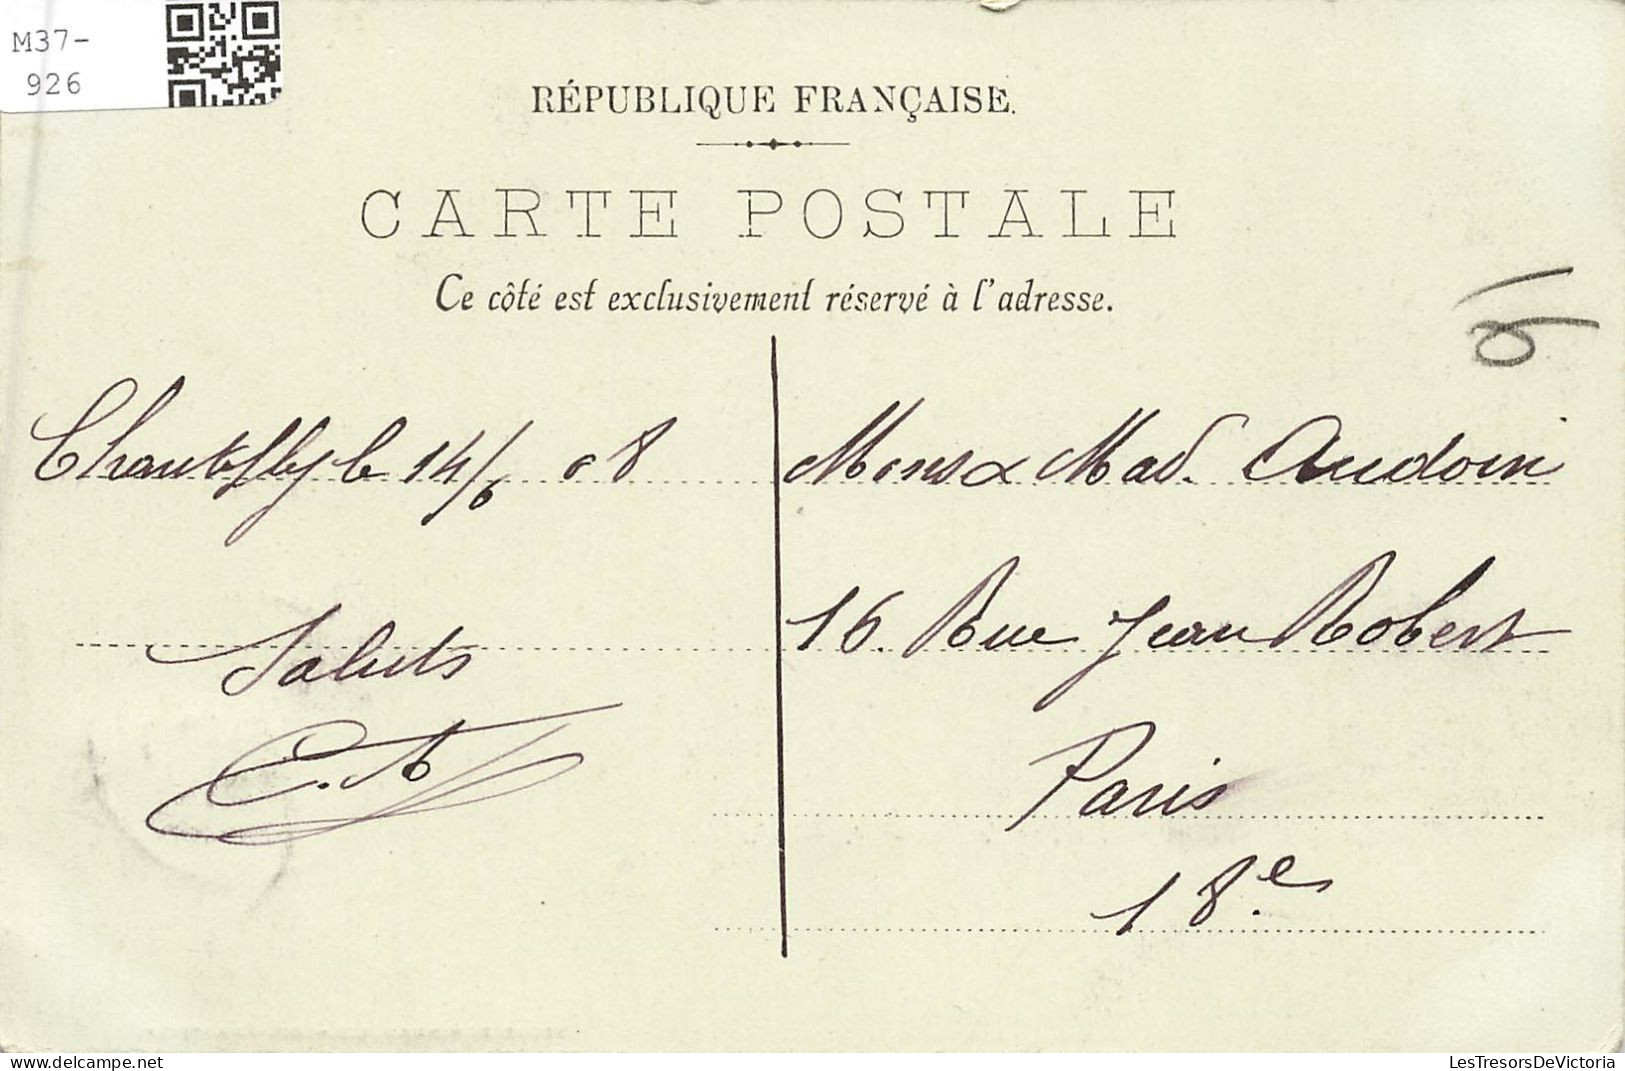 M37-
926
RÉPUBLIQUE FRANÇAISE.
CARTE POSTALE
Ce côté est exclusivement réservé à l'adresse.
le 14/6 08
Saluts
Mons & Mad. Audoin
16. Rue Jean Robert
Paris
18.e
delcampe.net
LesTresorsDeVictoria